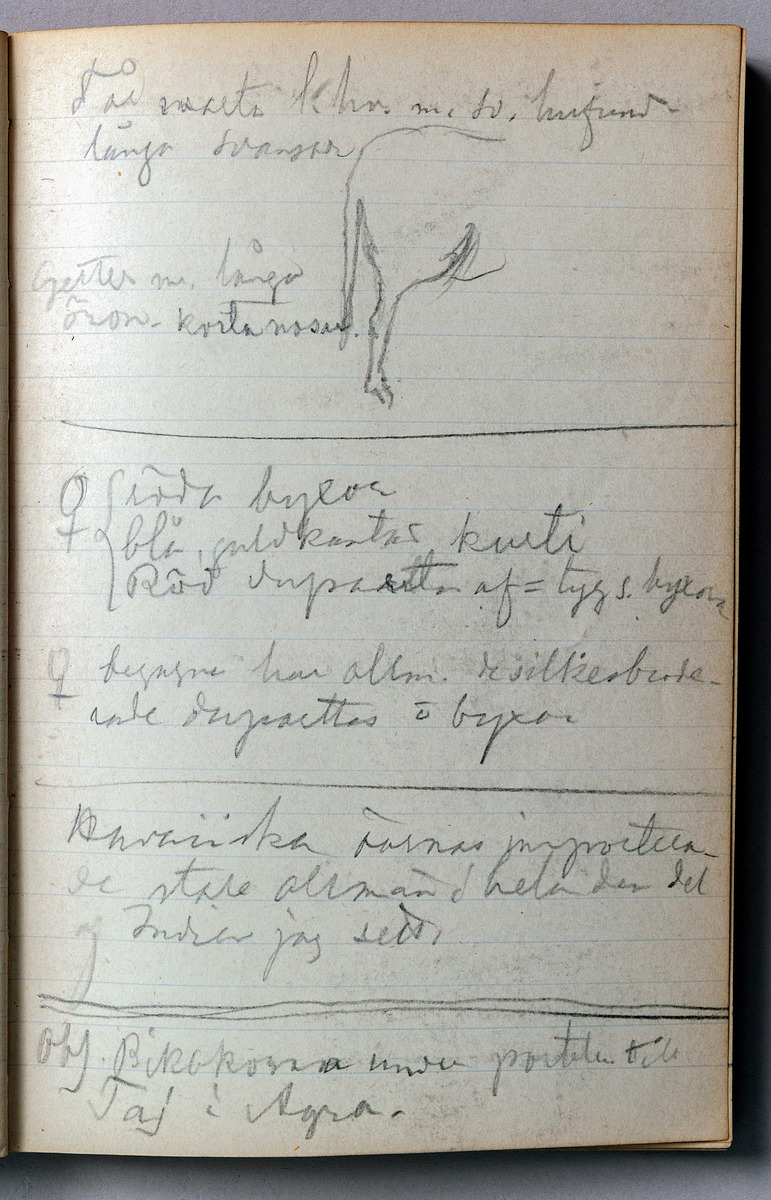 Två svarta k. hvr. m. sv. hufvud-
långa svansar
Getter m. långa
öron - korta nosar.
♀ röda byxor
blå, guldkantad kurti
Röd dupatta af = tyg s. byxorna
♀ begagna här allm. de silkesbrode-
rade dupattas o byxor
Hawaiiska öarnas importera-
de stare allmän i hela den del
af Indien jag sett.
Obs. Bikakorna under porten till
Taj i Agra.